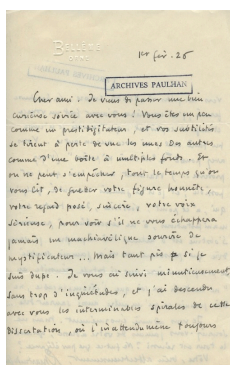 BELLÊME
ORNE
1er fév. 26
ARCHIVES PAULHAN
Cher ami. Je viens de passer une bien
curieuse soirée avec vous ! Vous êtes un peu
comme un prestidigitateur, et vos subtilités
se tirent à perte de vue les unes des autres
comme d'une boîte à multiples fonds. Et
on ne peut s'empêcher, tout le temps qu'on
vous lit, de guetter votre figure honnête,
votre regard posé, sincère, votre voix
sérieuse, pour voir s'il ne vous échappera
jamais un machiavélique sourire de
mystificateur... Mais tant pis si je
suis dupe. Je vous ai suivi minutieusement,
sans trop d'inquiétudes, et j'ai descendu
avec vous les interminables spirales de cette
dissertation, où l'inattendu mène toujours